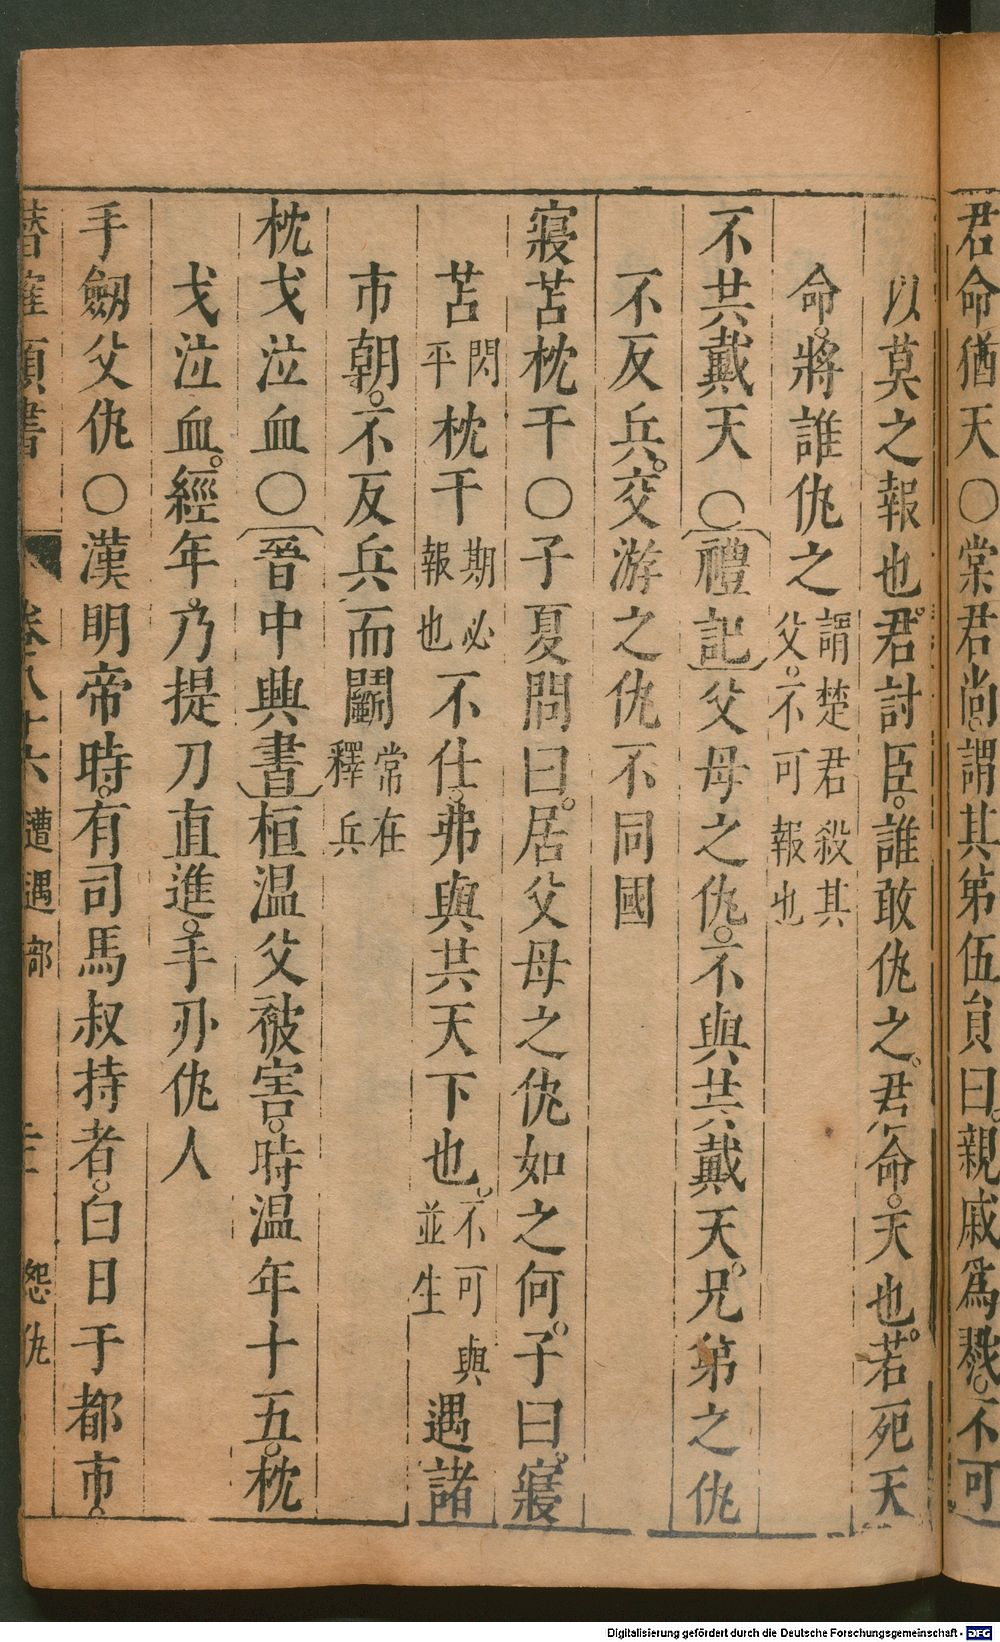 君命猶天○棠君尚謂其弟伍員曰親戚爲戮不可
以莫之報也君討臣誰敢仇之君命天也若死天
命將誰仇之謂楚君殺其父不可報也
不共戴天○禮記父母之仇不與共戴天兄弟之仇
不反兵交游之仇不同國
寢苫枕干○子夏問曰居父母之仇如之何子曰寢
苫閃平枕干期必報也不仕弗與共天下也不可與並生遇諸
市朝不反兵而鬭常在釋兵
枕戈泣血○晉中興書桓温父被害時温年十五枕
戈泣血經年乃提刀直進手刃仇人
手劒父仇○漢明帝時有司馬叔持者白日于都市
類書 卷八十六 遭遇部 怨仇
Digitalisierung gefördert durch die Deutsche Forschungsgemeinschaft - DFG